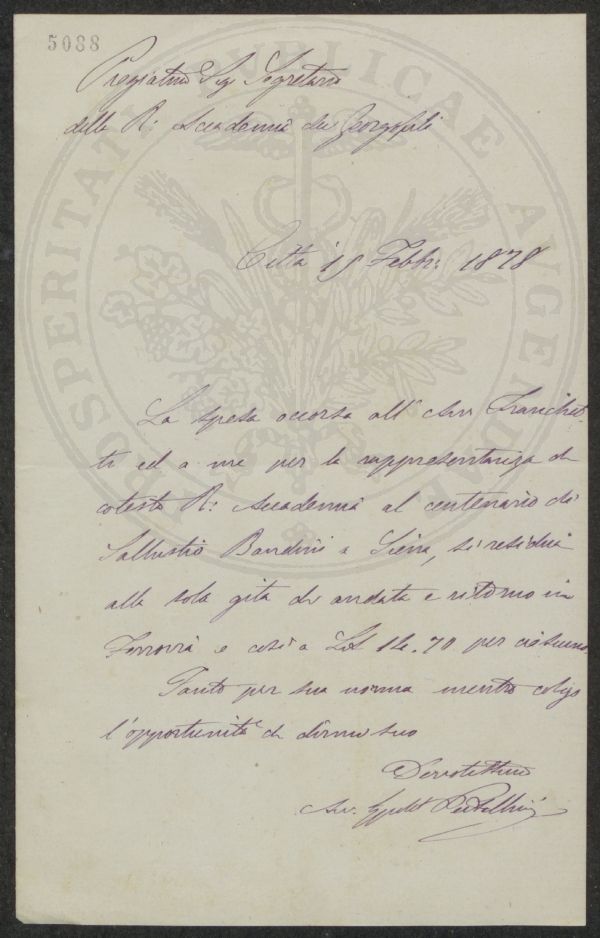 5088
Pregiatmo Sig Segretario
della R: Accademia dei Georgofili
Città 19 Febb: 1878
La spesa occorsa all' Avv Franchet-
ti ed a me per la rappresentanza di
cotesta R: Accademia al centenario di
Sallustio Bandini a Siena, si residua
alla sola gita di andata e ritorno in
Ferrovia e così a L 14.70 per ciascuno
Tanto per sua norma mentre colgo
l'opportunità di dirmi suo
Devotissimo
Avv.
PROSPERITATI PUBLICAE AUGENDAE